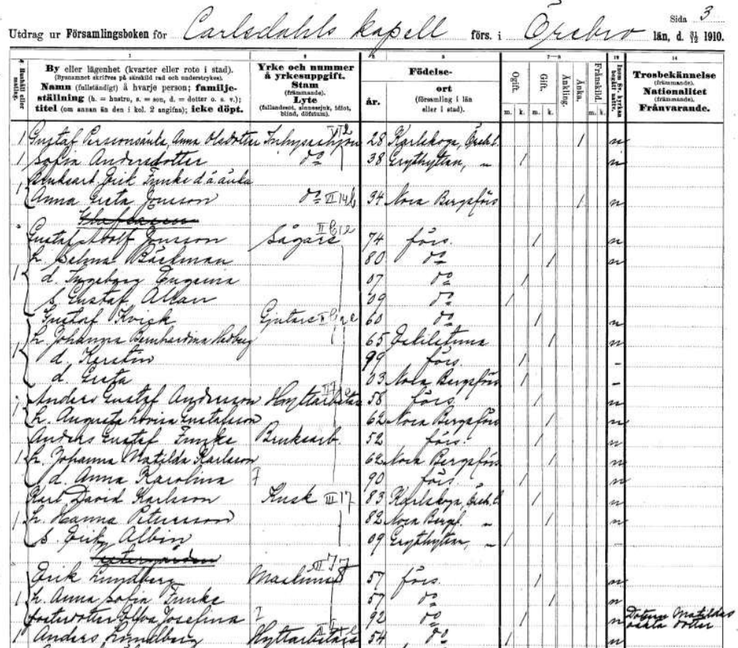 Sida 3
Utdrag ur Församlingsboken för Carlsdahls kapell förs. i Örebro län, d. 31/12 1910.
By eller lägenhet (kvarter eller rote i stad).
Namn (fullständigt) å hvarje person; familje-
ställning (h. = hustru, s. = son, d. = dotter o. s. v.);
titel (om annan än den i kol. 2 angifna); icke döpt.
Yrke och nummer
å yrkesuppgift.
Stam
(främmande).
Lyte
(fallandesot, sinnessjuk, idiot,
blind, döfstum).
Födelse-
år.
ort
(församling i län
eller i stad).
Ogift. Gift. Änkling. Änka. Frånskild.
m. k. m. k. m. k.
Trosbekännelse
(främmande).
Nationalitet
(främmande).
Frånvarande.
1 Gustaf Perssonsänka, Anna Olsdotter 28 Karlskoga, Öreb. l.
1 Sofia Andersdotter do 38 Grythyttan, "
Bruksarb. Erik Funkes d ä änka
1 Anna Greta Jonsson do 34 Nora Bergsförs
Gustaf Adolf Jonsson Sågare 74 förs.
h. Selma Bäckman 80 do
1 d. Ingeborg Eugenia 07 do
s. Gustaf Allan 09 do
Gustaf Kvick Gjutare 60 do
h. Johanna Bernhardina Hedberg 65 Eskilstuna
1 d. Kerstin 99 förs.
d. Greta 03 Nora Bergsförs
Anders Gustaf Andersson Hyttarbetare 58 förs.
1 h. Augusta Lovisa Gustafsson 62 Nora Bergsförs
Anders Gustaf Funke Bruksarb. 52 förs.
1 h. Johanna Matilda Karlsson 62 Nora Bergsförs
d. Anna Karolina 90 förs.
Karl David Karlsson Kusk III 17 83 Karlskoga, Öreb. l.
1 h. Hanna Petersson 82 Nora Bergsf. "
s. Erik Albin 09 Grythyttan, "
Erik Lundberg Maskinist 57 förs.
1 h. Anna Sofia Funke 57 do
fosterdotter Josefina 92 do Matildas oäkta dotter
1 Anders Lundberg Hyttarbetare 54 do